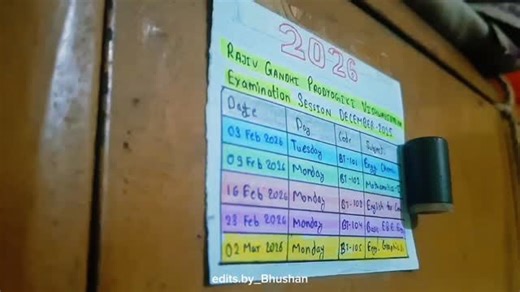 2026
RAJIV GANDHI PRODYOGIKI
Examination SESSION DECEMBER-2025
Date Day Code Subject
03 Feb 2026 Tuesday BT-101 Engg. Chemis
09 Feb 2026 Monday BT-102 Mathematics-
16 Feb 2026 Monday BT-103 English for
23 Feb 2026 Monday BT-104 Basic E&E Eng
02 Mar 2026 Monday BT-105 Engg. Graphics
edits.by_Bhushan